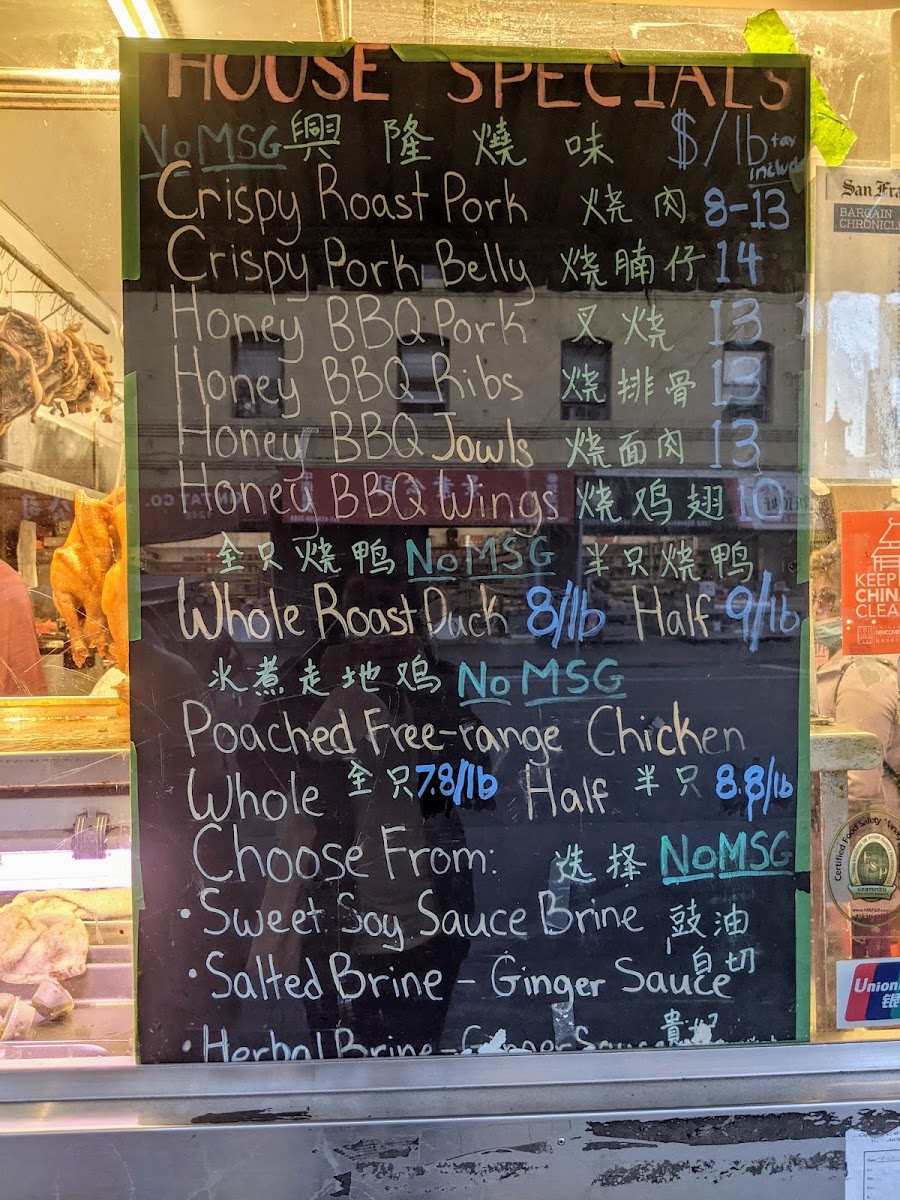 HOUSE SPECIALS
No MSG 興隆燒味 $/lb tax
Crispy Roast Pork 烧肉 8-13
Crispy Pork Belly 烧腩仔 14
Honey BBQ Pork 叉烧 13
Honey BBQ Ribs 烧排骨 13
Honey BBQ Jowls 烧面肉 13
Honey BBQ Wings 烧鸡翅 10
全只烧鸭 No MSG 半只烧鸭
Whole Roast Duck 8/lb Half 9/lb
水煮走地鸡 No MSG
Poached Free-range Chicken
Whole 全只 7.8/lb Half 半只 8.8/lb
Choose From: 选择 No MSG
• Sweet Soy Sauce Brine 豉油
• Salted Brine - Ginger Sauce 白切
• Herbal Brine - Ginger Sauce 貴妃
San Fra
BARGAIN
CHRONICLE
KEEP
CHINA
CLEA
Certified Food Safety
CERTIFIED
Union
银